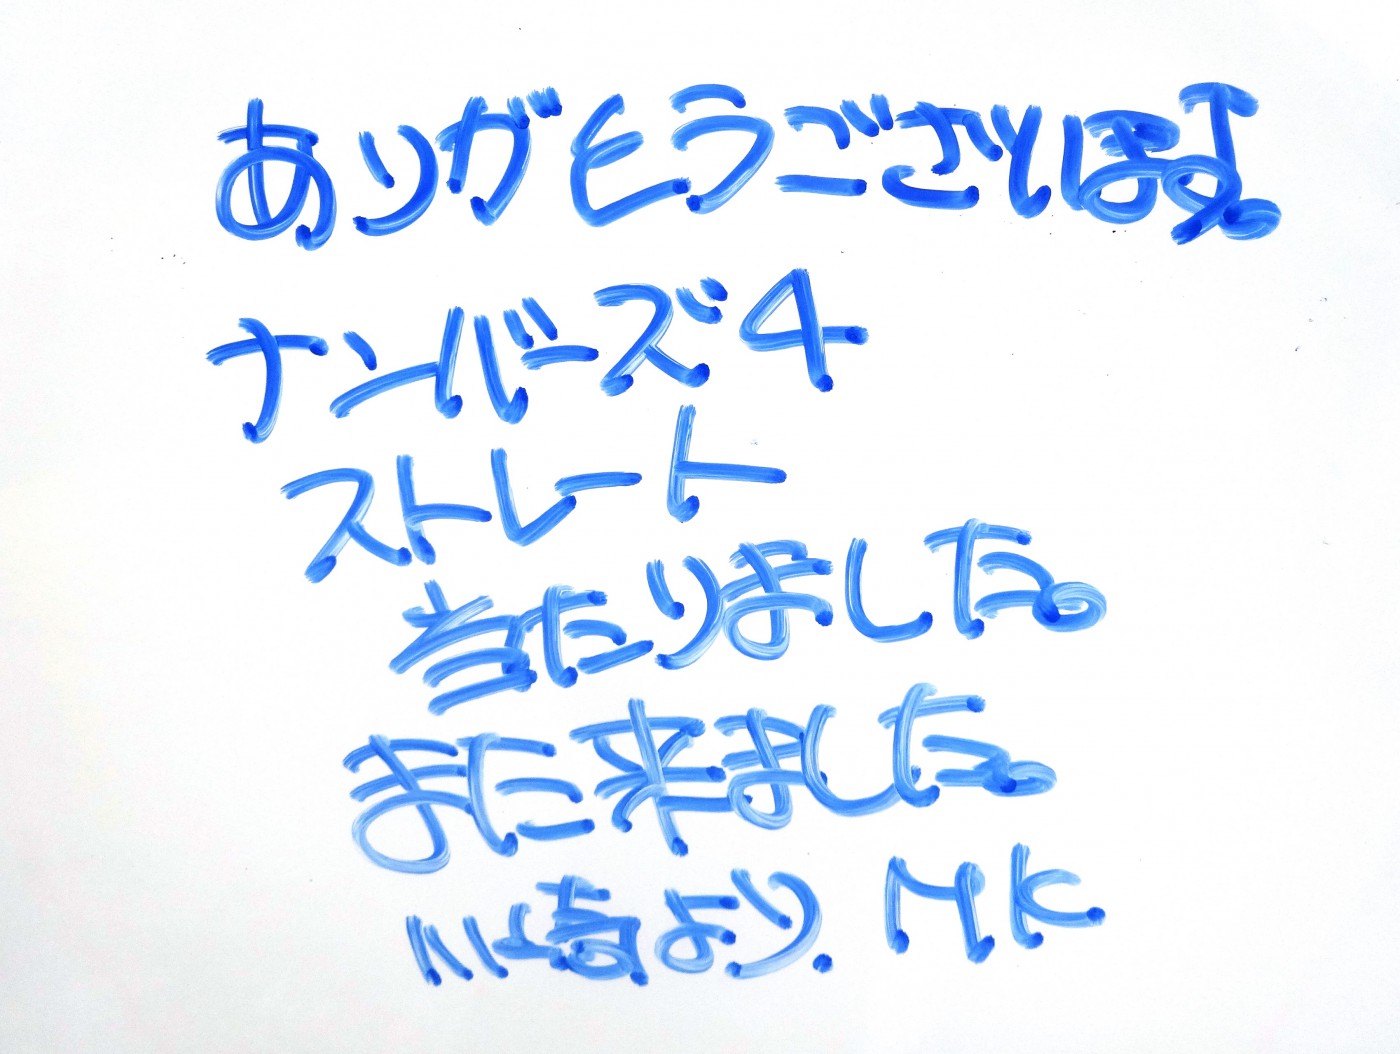 ありがとうございます。
ナンバーズ4
ストレート
当たりました。
また来ました。
川崎より. MK